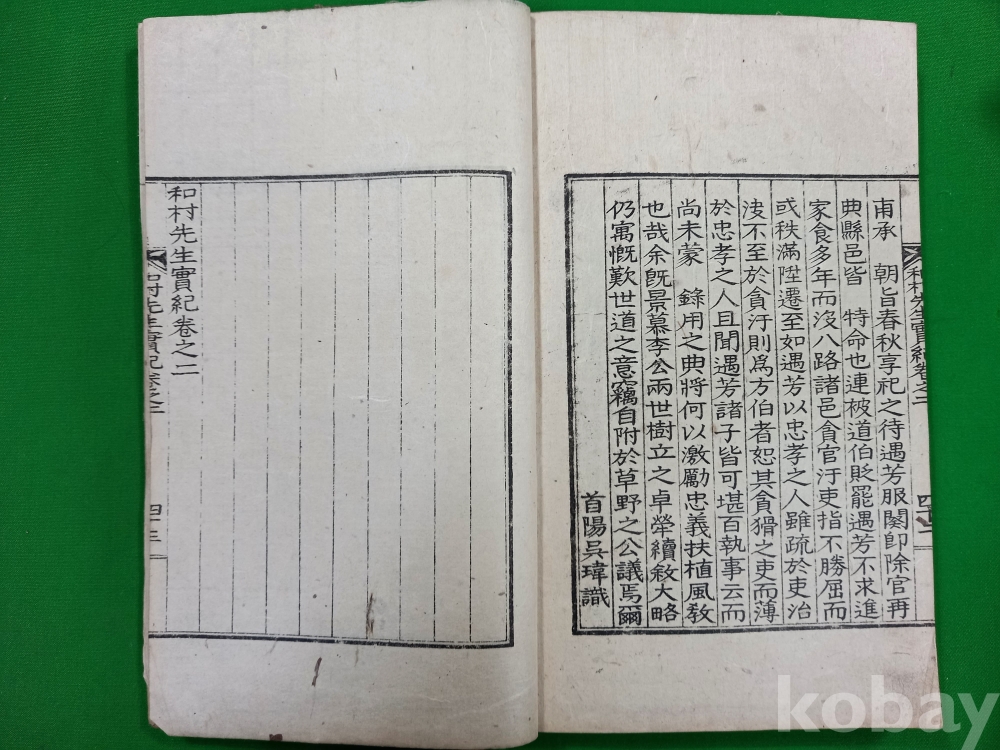 和村先生實紀卷之二
四十二
甫承 朝旨春秋享祀之待遇芳服闋卽除官再
典縣邑皆 特命也連被道伯貶罷遇芳不求進
家食多年而沒八路諸邑貪官汙吏指不勝屈而
或秩滿陞遷至如遇芳以忠孝之人雖疏於吏治
決不至於貪汙則爲方伯者恕其貪猾之吏而薄
於忠孝之人且聞遇芳諸子皆可堪百執事云而
尚未蒙 錄用之典將何以激勵忠義扶植風敎
也哉余旣景慕李公兩世樹立之卓犖續敘大略
仍寓慨歎世道之意竊自附於草野之公議焉爾
首陽吳瑋識
和村先生實紀卷之二
和村先生實紀卷之二
四十三
kobay